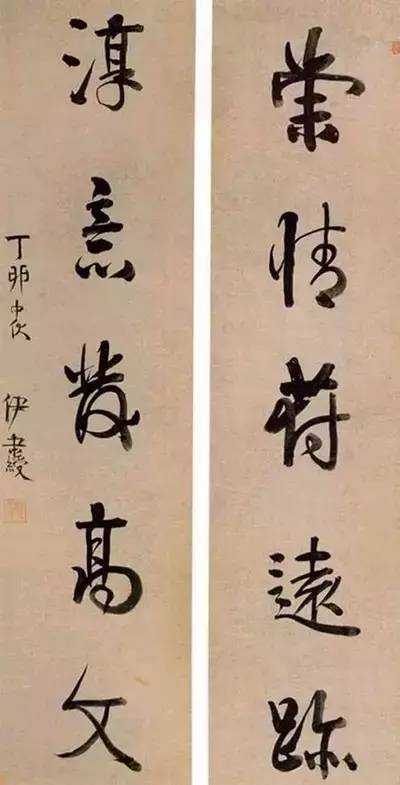 崇情符遠跡
淳意發高文
丁卯中伏 伊秉綬